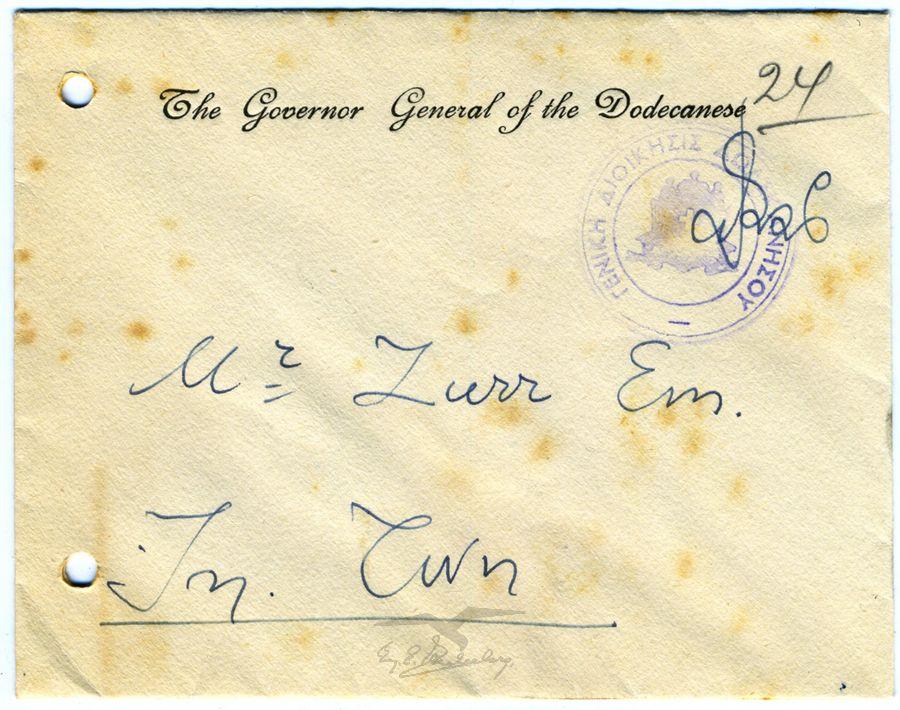 The Governor General of the Dodecanese
24
ΓΕΝΙΚΗ ΔΙΟΙΚΗΣΙΣ ΔΩ ΝΗΣΟΥ
Mr Zurr Em.
In Twn